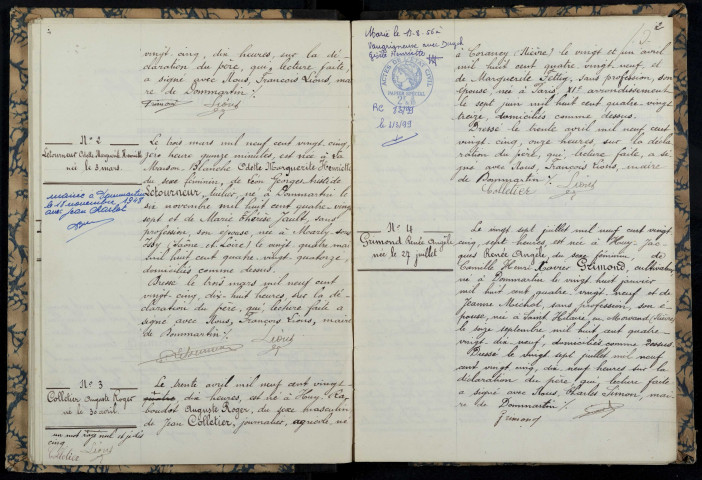 vingt cinq, dix heures, sur la dé-
claration du père, qui, lecture faite,
a signé avec Nous, François Liours, mai
re de Dommartin ./.
Liours
N° 2
Letourneur Odette Marguerite Henriette
née le 3 mars.
le 11 novembre 1948
avec Jean
Le trois mars mil neuf cent vingt cinq,
zéro heure quinze minutes, est née à La
Maison Blanche Odette Marguerite Henriette
du sexe féminin, de Léon Georges
Letourneur, né à Dommartin le
six novembre mil huit cent quatre-vingt
sept et de Marie Thérèse Jault, sans
profession, son épouse, née à Marly sous
Issy (Saône et Loire) le vingt quatre mai
mil huit cent quatre-vingt quatorze,
domiciliés comme dessus.
Dressé le trois mars mil neuf cent
vingt-cinq, dix-huit heures, sur la dé-
claration du père, qui, lecture faite a
signé avec Nous, François Liours, maire
de Dommartin ./.
Letourneur Liours
N° 3
Colletier Auguste Roger
né le 30 avril
un mot rayé nul
cinq
Colletier Liours
Le trente avril mil neuf cent vingt-
dix heures, est né à Huy-
Auguste Roger, du sexe masculin
de Jean Colletier, journalier, né
2
Marié le 11-8-56 à
Vaugrigneuse avec
ACTES DE L'ETAT CIVIL
PAPIER SPECIAL
RC
à Corancy (Nièvre) le vingt et un avril
mil huit cent quatre vingt neuf et
de Marguerite, sans profession, son
épouse, née à Paris, XI° arrondissement
le sept juin mil huit cent quatre-vingt
treize, domiciliés comme dessus.
Dressé le trente avril mil neuf cent
vingt-cinq, onze heures, sur la décla-
ration du père, qui, lecture faite, a si-
gné avec Nous, François Liours, maire
de Dommartin ./.
Colletier Liours
N° 4
Grimond Renée Angèle
née le 27 juillet
Le vingt sept juillet mil neuf cent vingt
cinq, sept heures, est née à Huy-Jac-
ques Renée Angèle, du sexe féminin, de
Camille Henri Xavier Grimond, cultivateur
né à Dommartin le vingt huit janvier
mil huit cent quatre-vingt neuf et de
Jeanne Michot, sans profession, son é-
pouse, née à Saint Hilaire en Morvand (Nièvre)
le seize septembre mil huit cent quatre-
vingt-dix-neuf, domiciliés comme dessus.
Dressé le vingt sept juillet mil neuf
cent vingt cinq, neuf heures sur la
déclaration du père, qui, lecture faite
a signé avec Nous, Charles Simon, mai-
re de Dommartin ./.
Grimond